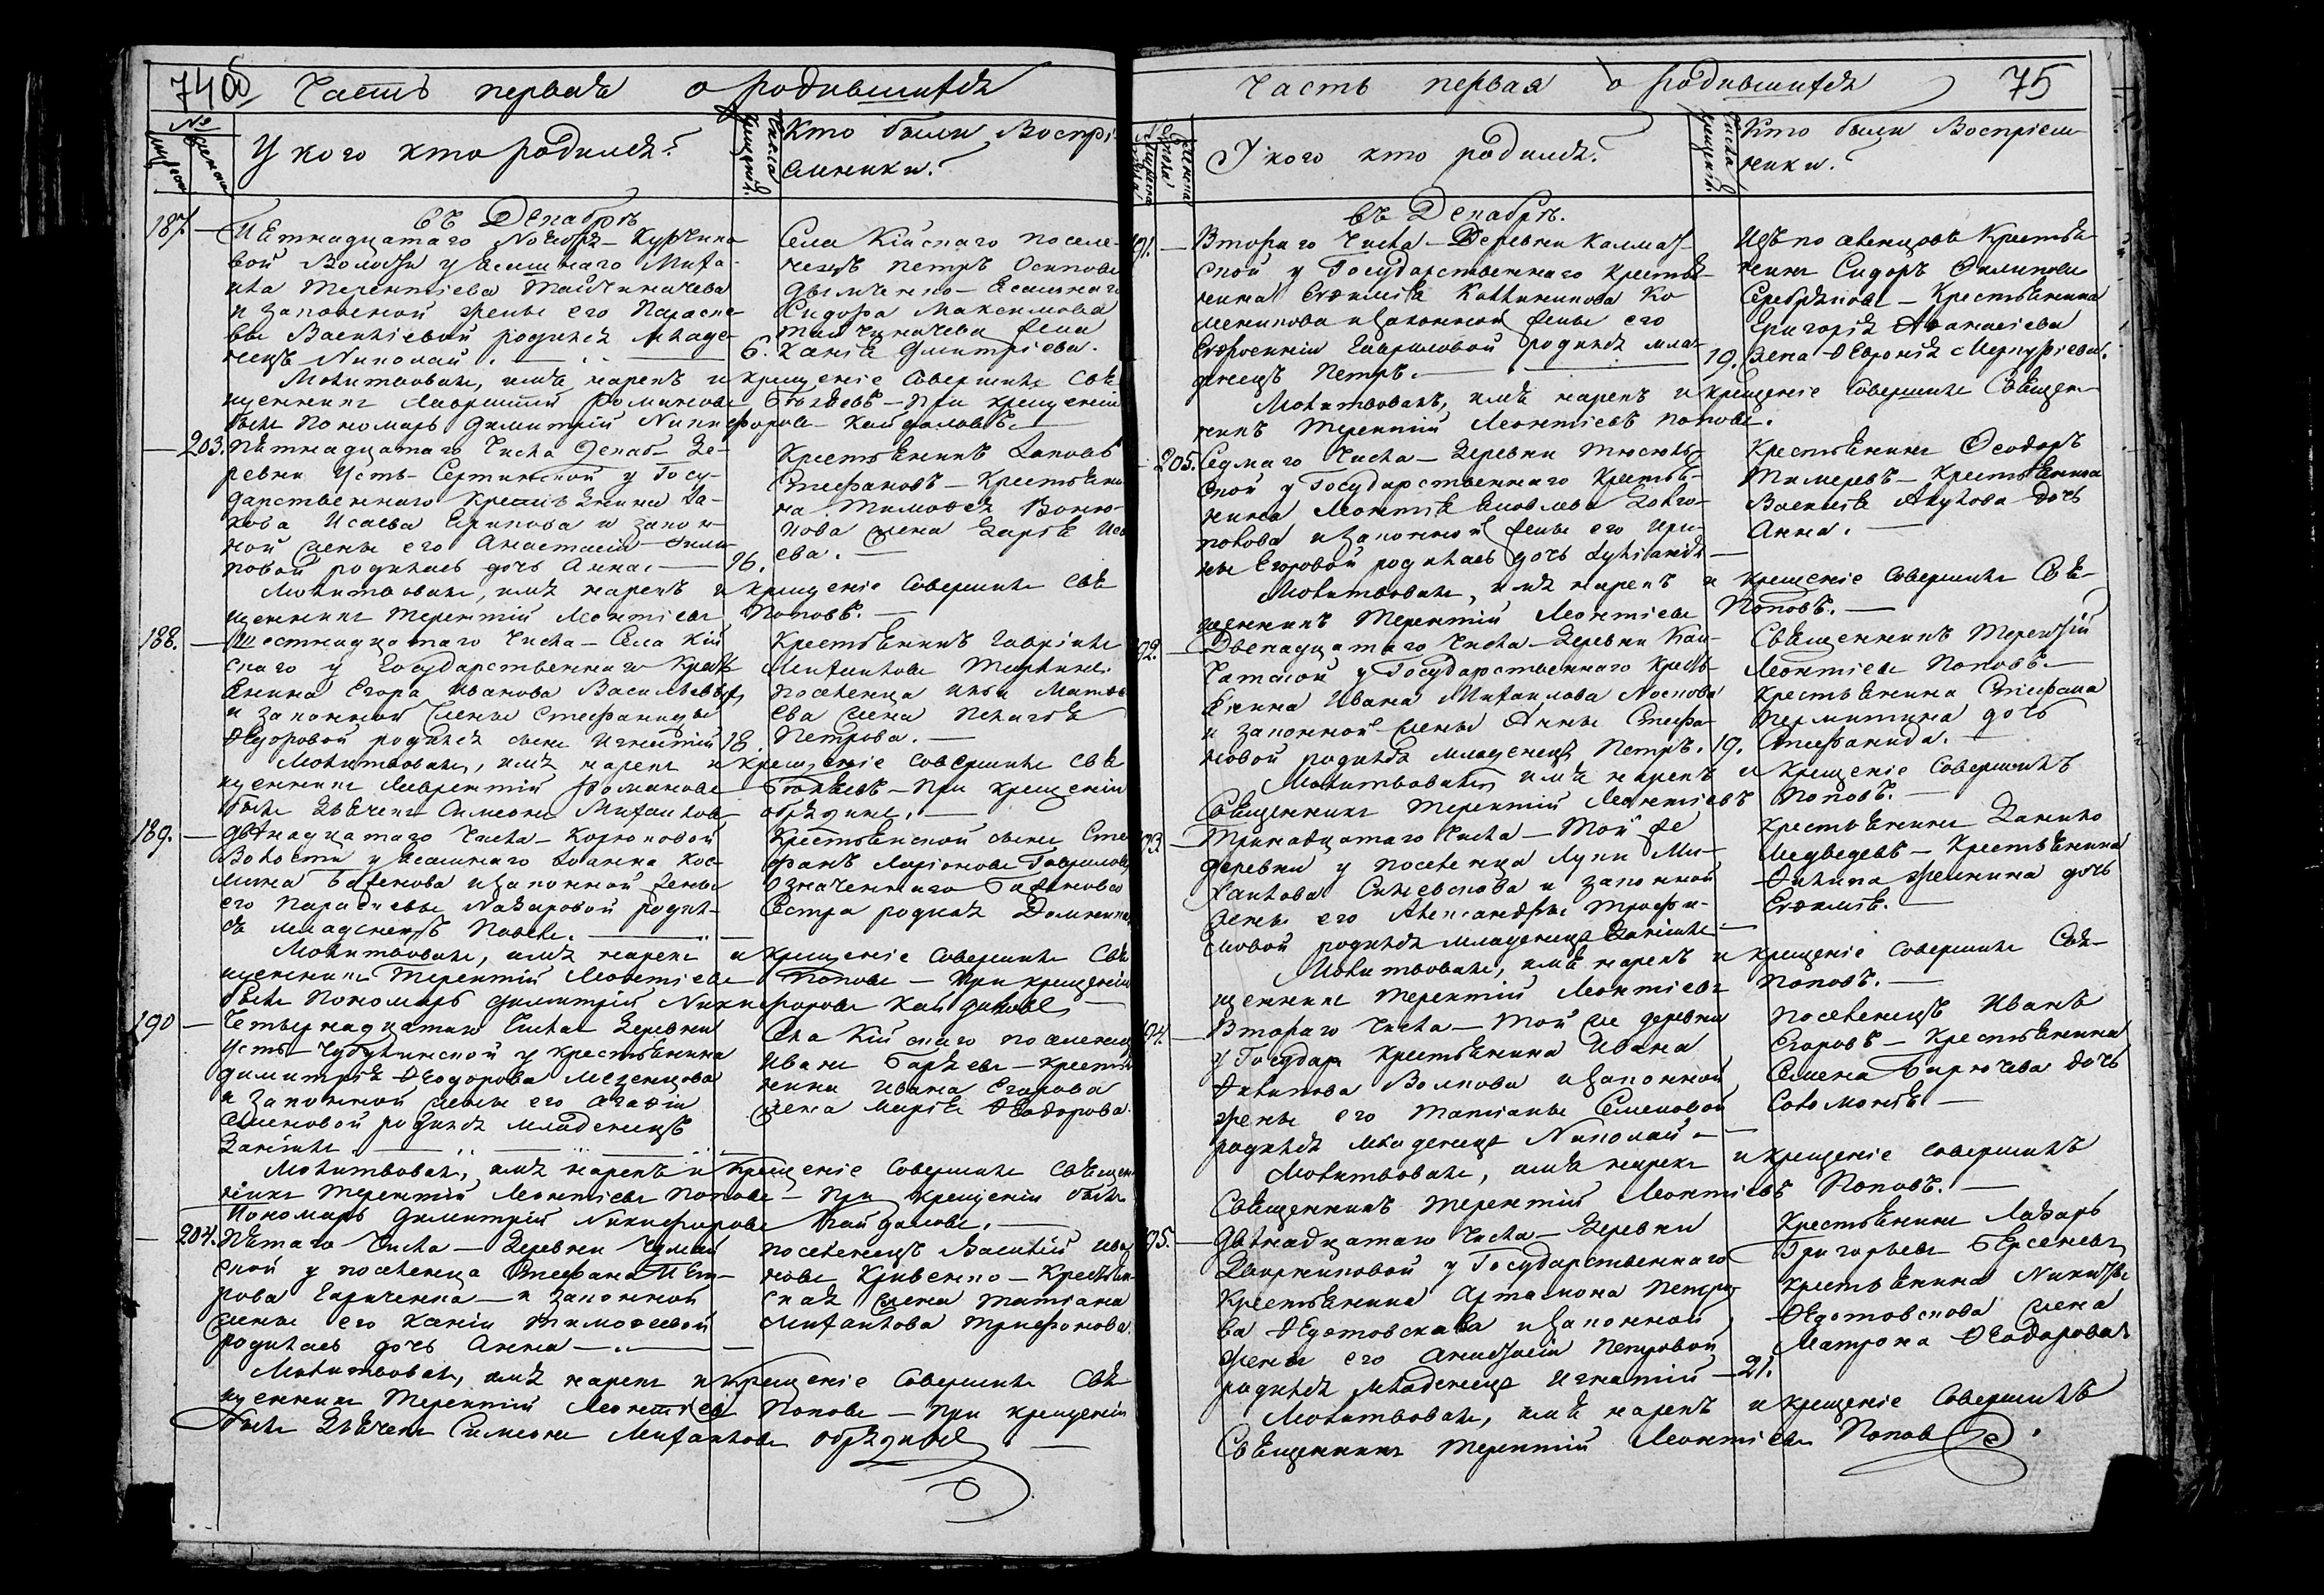 74 об Часть первая о родившихся
№
Мужеска Женска
У кого кто родился?
Числа крещенія.
Кто были Воспрі-
емники?
въ Декабрѣ
187. — Пятнадцатаго Ноября —
вой Волости у Ясашнаго Миха-
ила Терентіева
и законной жены его Параске-
вы Василіевой родился младе-
нецъ Николай. — 6.
Села Кійскаго поселе-
нецъ Петръ Осиповъ
— Ясашнаго
Сидора Максимова
жена
Ксенія Дмитріева.
Молитвовалъ, имя нарекъ и крещеніе совершилъ Свя
щенникъ Лаврентій — При крещеніи
былъ Пономарь Димитрій Никифоровъ Кайдаловъ. —
— 203. Пятнадцатаго Числа Декаб — Де-
ревни Усть-Сертинской у Госу-
дарственнаго Крестьянина Іа-
кова Исаева и закон-
ной жены его Анастасіи Фили-
повой родилась дочь Анна. — 26.
Крестьянинъ Іаковъ
Стефановъ — Крестьяни
на Тимофея
жена Дарія Иса
ева. —
Молитвовалъ, имя нарекъ и крещеніе совершилъ Свя
щенникъ Терентій Леонтіевъ Поповъ. —
188. — Шестнадцатаго Числа — Села Кій
скаго у Государственнаго Крестьь
янина Егора Иванова Васильевыхъ
и законной жены Стефаниды
Ѳедоровой родился сынъ Игнатій 18.
Крестьянинъ Гавріилъ
Михаиловъ
поселенца Ильи Матвѣ
ева жена Пелагія
Петрова. —
Молитвовалъ, имя нарекъ и крещеніе совершилъ Свя
щенникъ Лаврентій — При крещеніи
былъ Дьячекъ Симеонъ Михаиловъ —
189. — Двѣнадцатаго Числа —
Волости у Ясашнаго Іоанна Кос-
мина и законной жены
его Параскевы Назаровой родил-
ся младенецъ Павелъ. —
Крестьянской сынъ Сте
фанъ Ларіоновъ Гавриловъ
означеннаго
Сестра родная
Молитвовалъ, имя нарекъ и крещеніе совершилъ Свя
щенникъ Терентій Леонтіевъ Поповъ — При крещеніи
былъ Пономарь Димитрій Никифоровъ Кайдаловъ —
190 — Четырнадцатаго Числа Деревни
Усть-Чубулинской у Крестьянина
Димитрія Ѳеодорова Мезенцова
и законной жены его Агафіи
Семеновой родился младенецъ
Даніилъ. —
Села Кійскаго поселенецъ
Иванъ — Крестья
нина Ивана Егорова
жена Марія Ѳеодорова.
Молитвовалъ, имя нарекъ и крещеніе совершилъ Священ
никъ Терентій Леонтіевъ Поповъ — При крещеніи былъ
Пономарь Димитрій Никифоровъ Кайдаловъ. —
— 204. Пятаго Числа — Деревни Чумай
ской у поселенца Стефана Пет-
рова — и законной
жены его Ксеніи Тимофеевой
родилась дочь Анна —
поселенецъ Василій Ива
новъ Кривенко — Крестьян-
ская жена Татіана
Михаилова Трифонова.
Молитвовалъ, имя нарекъ и крещеніе совершилъ Свя
щенникъ Терентій Леонтіевъ Поповъ — При крещеніи
былъ Дьячекъ Симеонъ Михаиловъ
Часть первая о родившихся 75
У кого кто родился?
Числа крещенія.
Кто были Воспріем-
ники?
въ Декабрѣ.
191. — Втораго Числа — Деревни Калмац-
ской у Государственнаго Крестья-
нина Евфимія
и законной жены его
Евфросиніи Гавриловой родился мла-
денецъ Петръ. — 19.
Изъ поселенцовъ Крестья-
нинъ Сидоръ Филиповъ
Серебряковъ — Крестьянина
Григорія Афанасіева
жена Ѳевронія Меркуріева.
Молитвовалъ, имя нарекъ и крещеніе совершилъ Священ-
никъ Терентій Леонтіевъ Поповъ.
— 205. Седмаго Числа — Деревни
ской у Государственнаго Крестья-
нина Леонтія Яковлева Долго-
полова и законной жены его Ири-
ны Егоровой родилась дочь —
Крестьянинъ Ѳеодоръ
— Крестьянина
Василія Акулова дочь
Анна. —
Молитвовалъ, имя нарекъ и крещеніе совершилъ Свя-
щенникъ Терентій Леонтіевъ Поповъ. —
192. — Двенадцатаго Числа — Деревни
у Государственнаго Кресть-
янина Ивана Михаилова Носкова
и законной жены Анны Стефа-
новой родился младенецъ Петръ. 19.
Священникъ Терентій
Леонтіевъ Поповъ. —
Крестьянина Стефана
Пермитина дочь
Стефанида. —
Молитвовалъ имя нарекъ и крещеніе совершилъ
Священникъ Терентій Леонтіевъ Поповъ. —
193. — Тринадцатаго Числа — Той же
деревни у поселенца Луки Ми-
хаилова и законной
жены его Александры Трофи-
мовой родился младенецъ Даніилъ —
Крестьянинъ Данило
Медведевъ — Крестьянина
Филипа дочь
Евфимія. —
Молитвовалъ, имя нарекъ и крещеніе совершилъ Свя-
щенникъ Терентій Леонтіевъ Поповъ. —
194. — Втораго Числа — Той же деревни
у Государ Крестьянина Ивана
Филипова Волкова и законной
жены его Татіаны Семеновой
родился младенецъ Николай —
поселенецъ Иванъ
Егоровъ — Крестьянина
Семена Бирючева дочь
Соломонія —
Молитвовалъ, имя нарекъ и крещеніе совершилъ
Священникъ Терентій Леонтіевъ Поповъ. —
195. — Двѣнадцатаго Числа — Деревни
Дворниковой у Государственнаго
Крестьянина Артамона Петро
ва Ѳедотовскава и законной
жены его Анастасіи Петровой
родился младенецъ Игнатій — 21.
Крестьянинъ Лазарь
Григорьевъ Берсеневъ
Крестьянина Никиты
Ѳедотовскова жена
Матрона Ѳеодорова
Молитвовалъ, имя нарекъ и крещеніе совершилъ
Священникъ Терентій Леонтіевъ Поповъ.